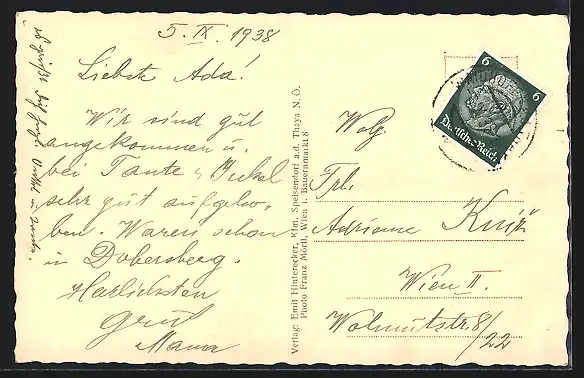 5. IX. 1938
Liebste Ada!
Wir sind gut
angekommen u.
bei Tante u. Onkel
sehr gut aufgeho-
ben. Waren schon
in Dobersberg.
Herlichsten
Gruß
Mama
Verlag: Emil Hinterecker, Kfm. Speisendorf a.d. Thaya N.Ö.
Photo Franz Mörtl, Wien I. Bauernmarkt 8
6 6
Deutsches Reich
Wolg.
Frl.
Adriane
Wien II.
Wolmutstr. 8/
/22